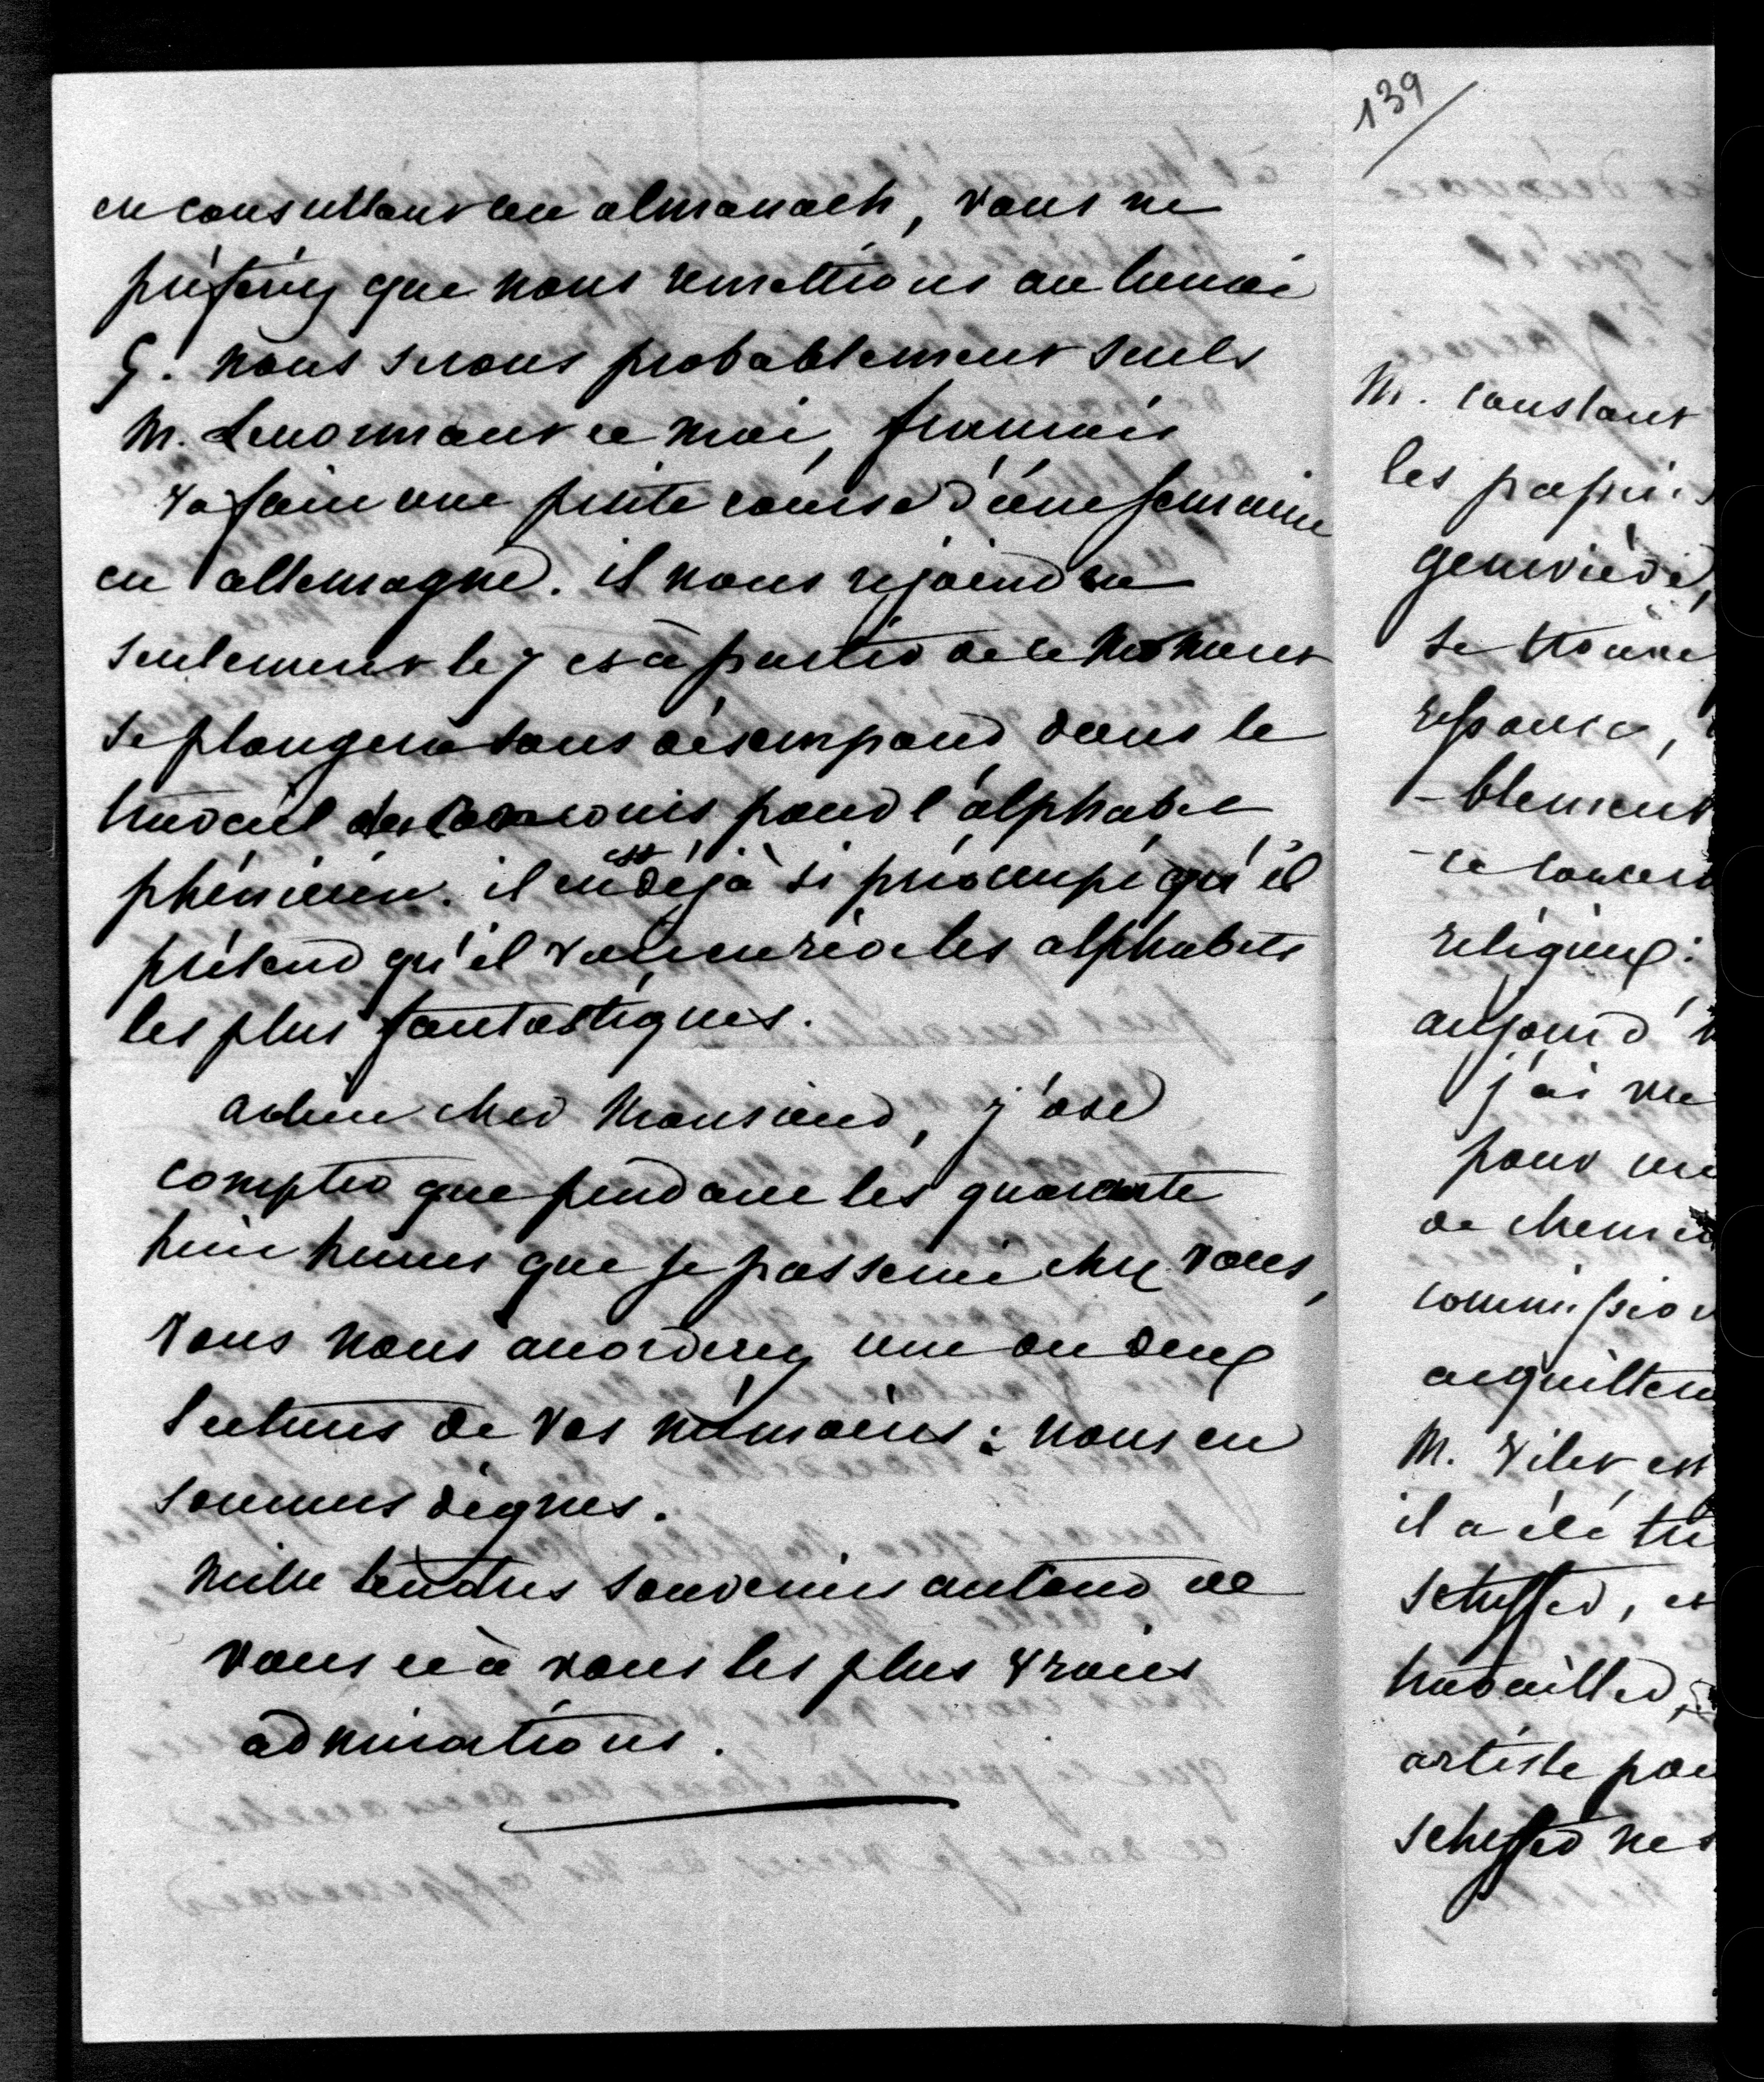 en consultant un almanach, vous ne
préfériez que nous remettions au lundi
9. nous serons probablement seuls
M. Lenormant et moi, françois
va faire une petite course d'une semaine
en allemagne. il nous rejoindra
seulement le 7 et à partir de ce moment
se plongera sans désemparer dans le
travail du concours pour l'alphabet
phénicien. il est déjà si préoccupé qu'il
prétend qu'il les alphabets
les plus fantastiques.
adieu cher Monsieur, j'ose
compter que pendant les quarante
huit heures que je passerai chez vous,
vous nous accorderez une ou deux
lectures de vos mémoires : nous en
sommes dignes.
Mille tendres souvenirs autour de
vous et à vous les plus vraies
admirations.
139
M. constant
les papiers
geneviève,
se trouve
response,
-blement
ce concer
religieux:
aujourd'h
j'ai vu
pour un
de chemin
commission
aiguillen
M. Vitet est
il a été tr
scheffer, et
travailler,
artiste pou
scheffer ne